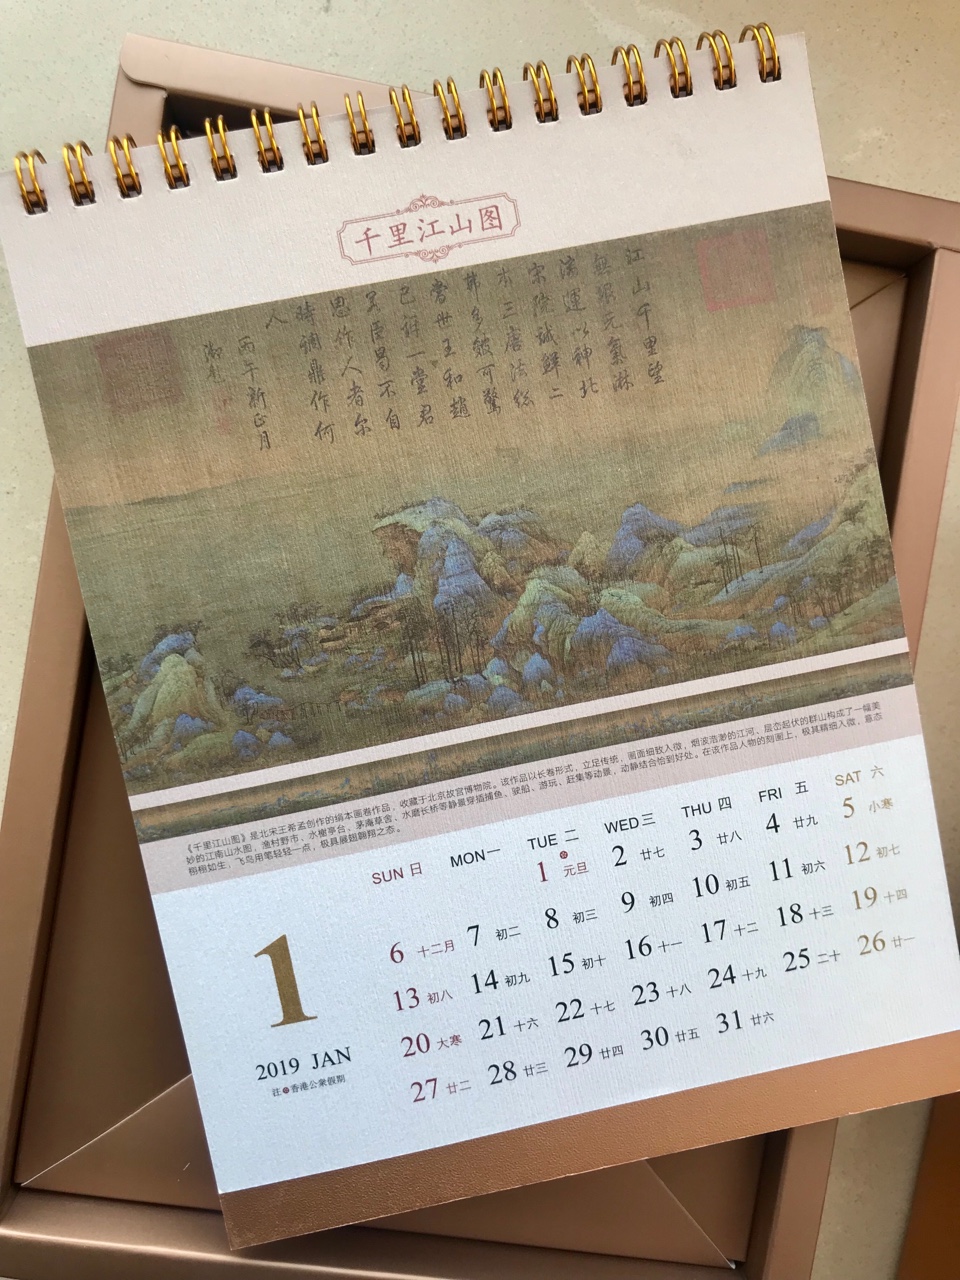 千里江山图
江山千里望
無垠元氣淋
漓運以神北
宋院誠鮮二
本三唐法總
弗多皴可驚
當世王和趙
已訝一堂君
若臣曷不自
思作人者尔
時調鼎作何
人
丙午新正月
御題
《千里江山图》是北宋王希孟创作的绢本画卷作品，收藏于北京故宫博物院。该作品以长卷形式，立足传统，画面细致入微，烟波浩渺的江河、层峦起伏的群山构成了一幅美
妙的江南山水图，渔村野市、水榭亭台、茅庵草舍、水磨长桥等静景穿插捕鱼、驶船、游玩、赶集等动景，动静结合恰到好处。在该作品人物的刻画上，极其精细入微，意态
栩栩如生，飞鸟用笔轻轻一点，极具展翅翱翔之态。
SUN 日 MON 一 TUE 二 WED 三 THU 四 FRI 五 SAT 六
1 元旦 2 廿七 3 廿八 4 廿九 5 小寒
6 十二月 7 初二 8 初三 9 初四 10 初五 11 初六 12 初七
13 初八 14 初九 15 初十 16 十一 17 十二 18 十三 19 十四
20 大寒 21 十六 22 十七 23 十八 24 十九 25 二十 26 廿一
27 廿二 28 廿三 29 廿四 30 廿五 31 廿六
1
2019 JAN
注 香港公眾假期